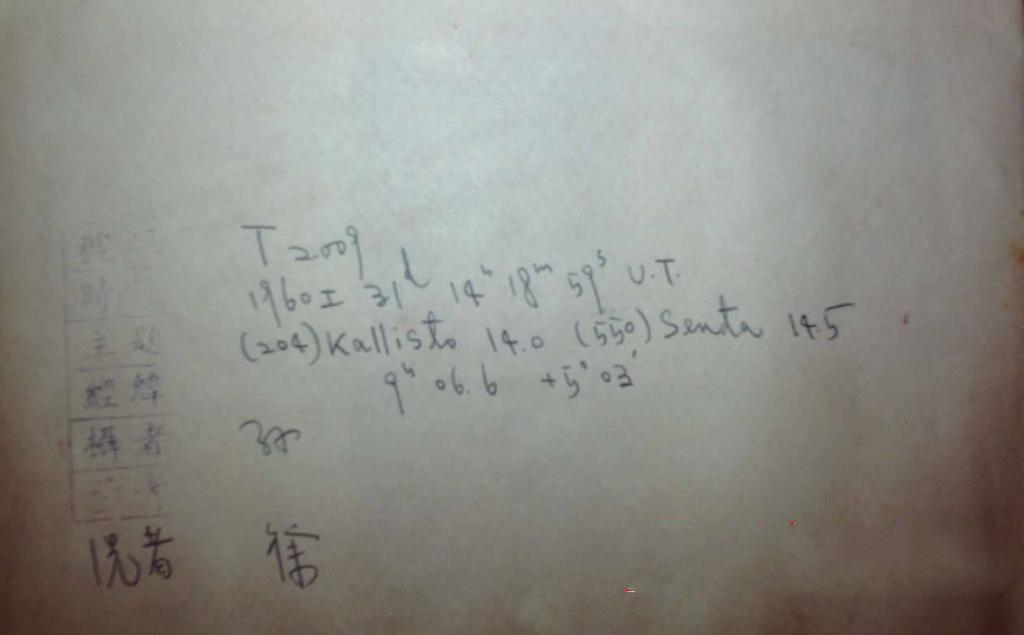 T 2009
時 1960 I 31ᵈ 14ʰ 18ᵐ 59ˢ U.T.
主題 (204) Kallisto 14.0 (550) Senta 14.5
經緯 9ʰ 06.6 +5° 03′
攝者 孙
徐